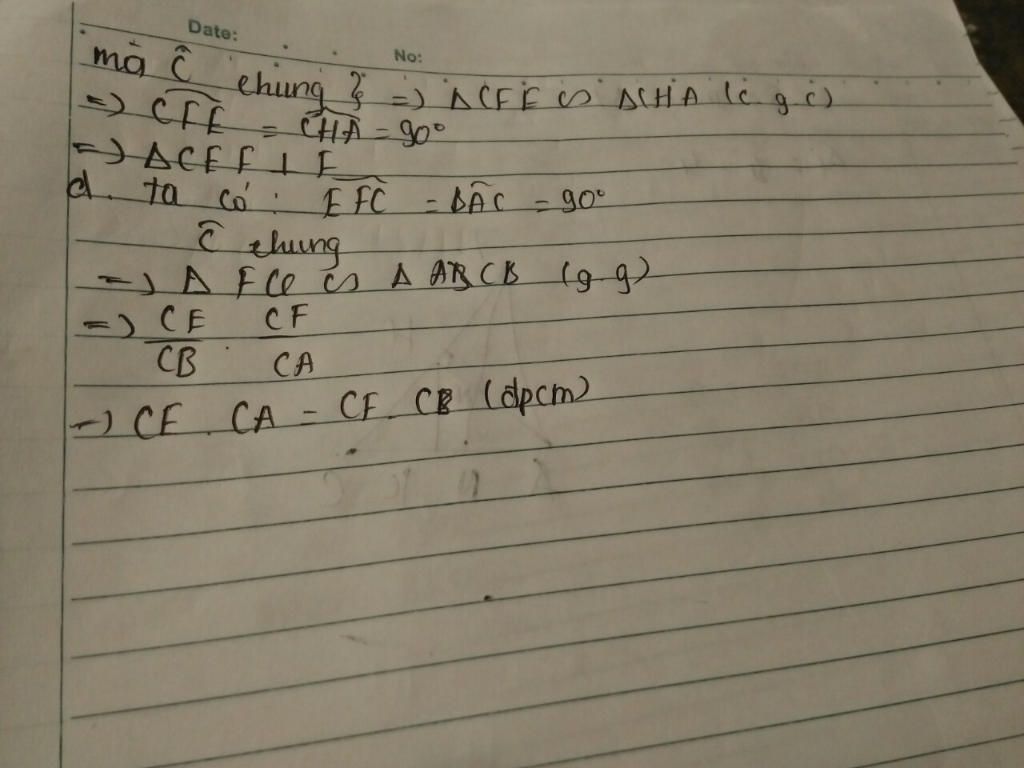 Date:
No:
mà Ĉ chung } => ΔCFE ∽ ΔCHA (c.g.c)
=> CFE = CHA = 90°
=> ΔCEF ⊥ F
d. ta có: EFC = BAC = 90°
Ĉ chung
=> Δ FCE ∽ Δ ABCB (g-g)
=> CE/CB . CF/CA
=> CE . CA = CF . CB (dpcm)